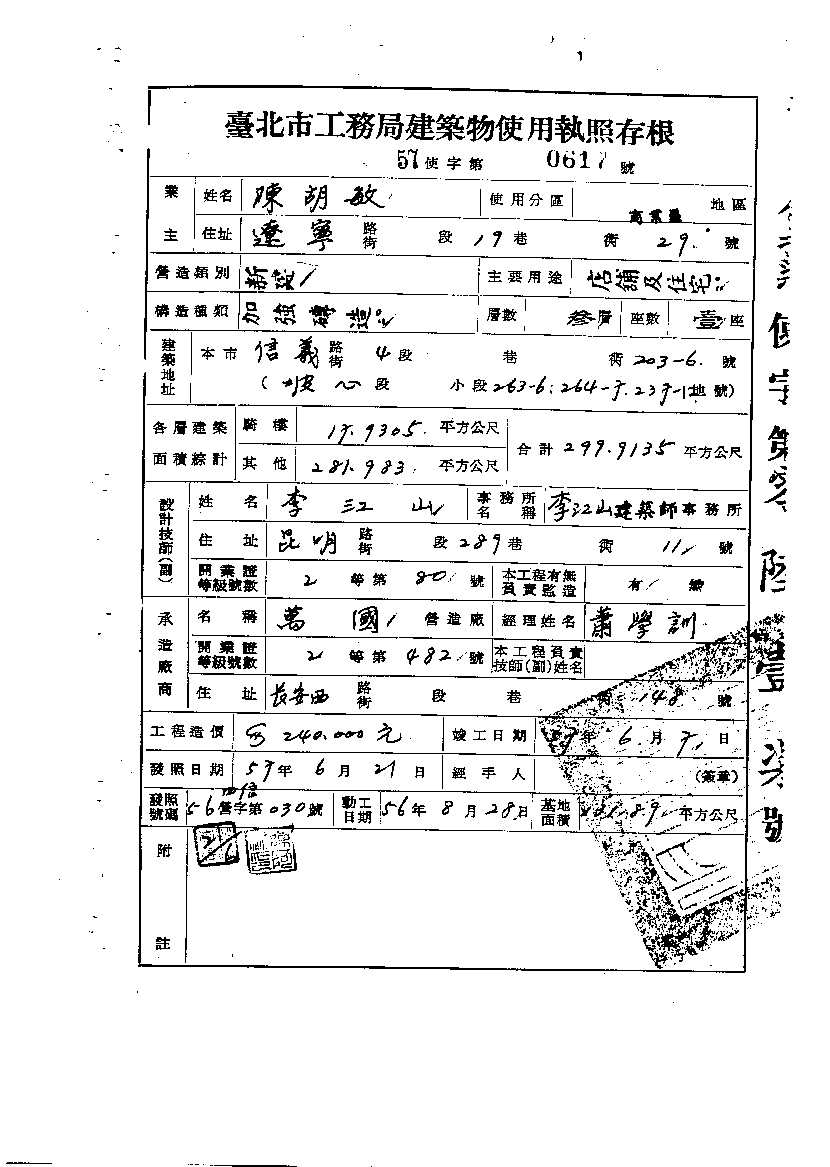 臺北市工務局建築物使用執照存根
57使字第 0617 號
業主 姓名 陳胡敏 使用分區 商業區 地區
住址 遼寧 路街 段 19巷 衖 29 號
營造類別 新建 主要用途 店舖及住宅
構造種類 加強磚造 層數 叁層 座數 壹座
建築地址 本市 信義 路街 4段 巷 衖 203-6 號
(坡心段 小段 263-6.264-5.235-1地號)
各層建築面積綜計 騎樓 17.9305 平方公尺 合計 299.9135 平方公尺
其他 281.983 平方公尺
設計技師(副) 姓名 李江山 事務所名稱 李江山建築師事務所
住址 昆明 路街 段 289巷 衖 11 號
開業證等級號數 2 等第 80 號 本工程有無負責監造 有/無
承造廠商 名稱 萬國 營造廠 經理姓名 蕭學訓
開業證等級號數 2 等第 482 號 本工程負責技師(副)姓名
住址 長安西 路街 段 巷 衖 148 號
工程造價 240.000元 竣工日期 57年 6月 日
發照日期 57年 6月 21日 經手人 (簽章)
發照號碼 56營字第030號 動工日期 56年 8月 28日 基地面積 平方公尺
附註
使字第 陸壹柒號